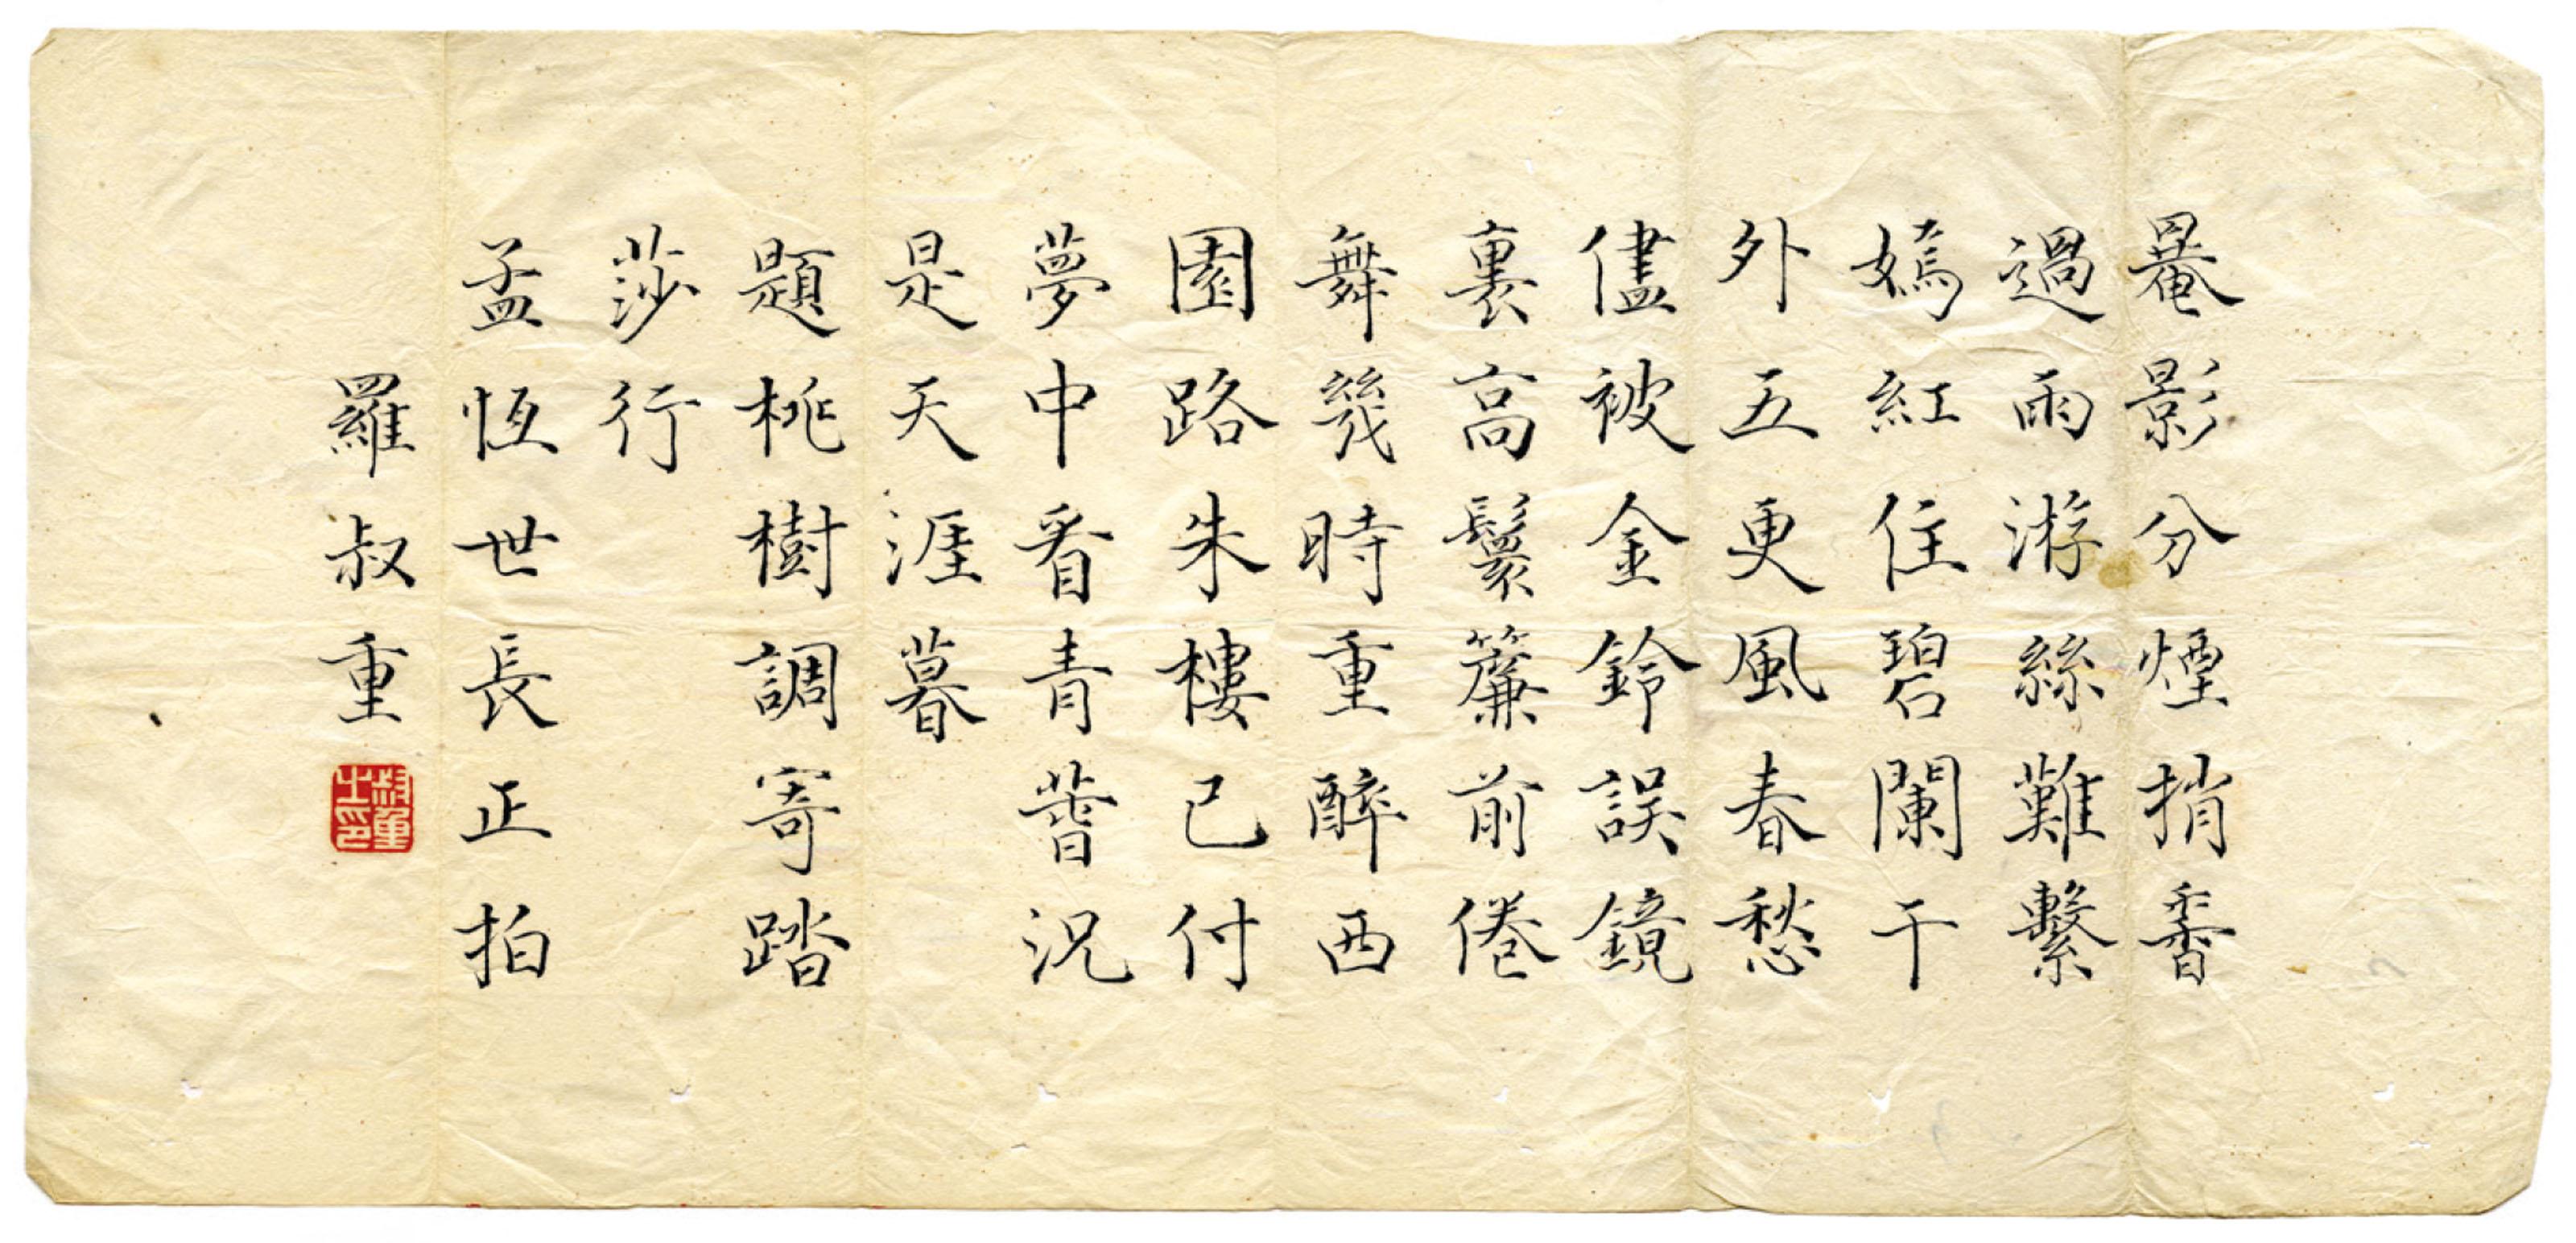 罨影分煙捎香
過雨游絲難繫
嫣紅住碧闌干
外五更風春愁
儘被金鈴誤鏡
裏高鬟簾前倦
舞幾時重醉西
園路朱樓已付
夢中看青萅況
是天涯暮
題桃樹調寄踏
莎行
孟恆世長正拍
羅叔重
叔重之印